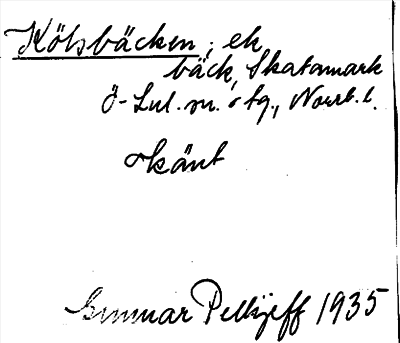 Kölsbäcken, ek,
bäck, Skatamark
Ö-Lul. sn. o tg., Norrb. l.
okänt
Gunnar Pellijeff 1935